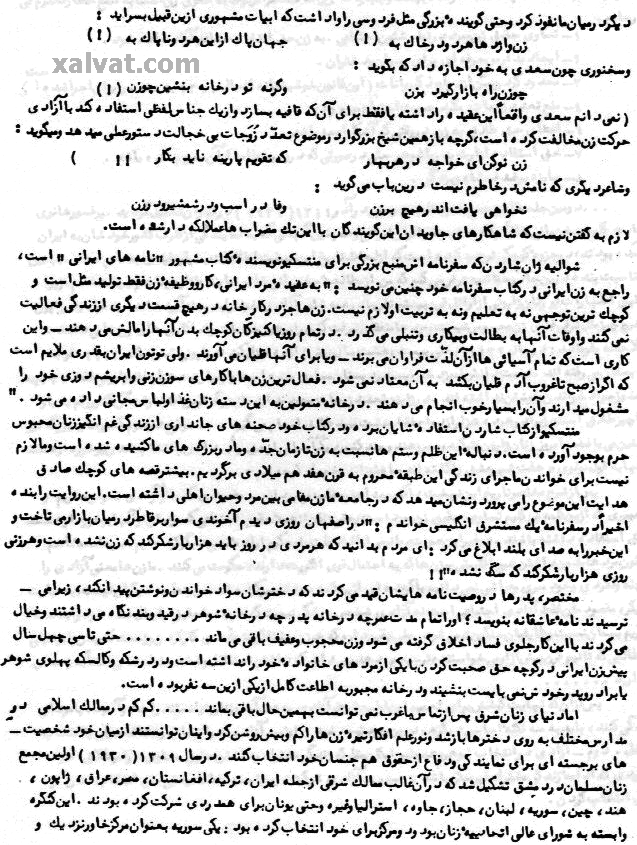 دیگرد رمیان ما نفوذ کرد وحتی گویند ه بزرگی مثل فرد وسی را واد اشت که ابیات مشهوری ازین قبیل بسراید :
زن و اژد ها هرد و د رخاک به (!) جهان پاک از این هرد و ناپاک به (!)
xalvat.com
وسخنوری چون سعد ی به خود اجازه داد که بگوید :
چوزن راه بازارگیرد بزن وگرنه تود رخانه بنشین چوزن (!)
( نمی دانم سعد ی واقعا این عقید ه راد اشته یا فقط برای آن که قافیه بسازد و ازیک جناس لفظی استفاد ه کند با آزاد ی
حرکت زن مخالفت کرد ه است، گرچه با زهمین شیخ بزرگوارد رموضوع تعد د زوجات بی خجالت د ستورعلی مید هد ومیگوید :
زن نوکن ای خواجه د رهربهار که تقویم پارینه ناید بکار !! )
وشاعرد یگری که نامش د رخاطرم نیست د رین باب می گوید :
نخواهی یافت اند رهیچ برزن وفا د ر اسب ود رشمشیرود رزن
لا زم به گفتن نیست که شاهکارهای جاوید ان این گویند گان با این تک مضراب ها علا لکه د ارشد ه است.
شوالیه ژان شارد ن که سفرنامه اش منبع بزرگی برای منتسکیونویسند ه کتاب مشهور " نامه های ایرانی " است،
راجع به زن ایرانی د رکتاب سفرنامه خود چنین می نویسد : " به عقید ه مرد ایرانی، کارووظیفه زن فقط تولید مثل است و
کوچک ترین توجهی نه به تعلیم ونه به تربیت اولا زم نیست. زن ها جزد رکارخانه د رهیچ قسمت د یگری اززند گی فعالیت
نمی کنند و اوقات آنها به بطالت وبیکاری وتنبلی می گذ رد . د رتمام روزیا کنیزکان کوچک بد ن آنها رامالش می د هند - واین
کاری است که تمام آسیائی ها ازآن لذ ت فراوان می برند - ویا برای آنها قلیان می آورند . ولی توتون ایران بقد ری ملایم است
که اگرازصبح تاغروب آد م قلیان بکشد به آن معتاد نمی شود . فعال ترین زن ها با کارهای سوزن زنی وابریشم د وزی خود را
مشغول مید ارند وآن را بسیارخوب انجام می د هند . د رخانه متمولین به این د سته زنان غذ اولباس مجانی د اد ه می شود . "
منتسکیو ازکتاب شارد ن استفاد ه شایان برد ه ود رکتاب خود صحنه های جانداری اززند گی غم انگیززنان محبوس
حرم بوجود آورد ه است. د نباله این ظلم وستم ها نسبت به زن تا زمان جد ه وماد ربزرگ های ماکشید ه شد ه است وما لا زم
نیست برای خواند ن ماجرای زند گی این طبقه محروم به قرن هفد هم میلاد ی برگرد یم. بیشترقصه های کوچک صاد ق
هد ایت این موضوع رامی پرورد ونشان مید هد که د رجامعه ما زن مقامی بین مرد وحیوان اهلی د اشته است. این روایت رابند ه
اخیراد رسفرنامه یک مستشرق انگلیسی خواند م : " د راصفهان روزی د ید م آخوند ی سواربرقاطرد رمیان بازارمی تاخت و
این خبررابه صد ای بلند ابلاغ می کرد : ای مرد م بد انید که هرمرد ی د ر روز باید هزاربارشکرکند که زن نشد ه است وهرزنی
روزی هزاربارشکرکند که سگ نشد ه " !!
مختصر، پد رها د روصیت نامه ها یشان قید می کرد ند که د خترشان سواد خواند ن ونوشتن پید انکند ، زیرا می -
ترسید ند نامه عاشقانه بنویسد ؛ اوراتمام مد ت عمرچه د رخانه پد ر چه د رخانه شوهر د رقید وبند نگاه می د اشتند وخیال
می کرد ند با این کارجلوی فساد اخلاق گرفته می شود وزن محجوب وعفیف باقی می ماند ......... حتی تا سی چهل سال
پیش زن ایرانی د رکوچه حق صحبت کرد ن با یکی ازمرد های خانواد ه خود راند اشته است ود رد رشکه وکالسکه پهلوی شوهر
یا براد روید رخود نمی بایست بنشیند ود رخانه مجبوربه اطاعت کامل ازیکی ازین سه نفربود ه است.
اماد نیای زنان شرق پس ازتماس باغرب نمی توانست بهمین حال باقی بماند ..... کم کم د رممالک اسلامی د ر
مد ارس مختلف به روی د خترها بازشد ونورعلم افکارتیره زن ها را کم وبیش روشن کرد و اینان توانستند ازمیان خود شخصیت -
های برجسته ای برای نمایند گی ود فاع ازحقوق هم جنسان خود انتخاب کنند . د رسال ۱۳۰۹ ( ۱۹۳۰ ) اولین مجمع
زنان مسلمان د رد مشق تشکیل شد که د رآن غالب ممالک شرقی ازجمله ایران ، ترکیه ، افغانستان ، مصر، عراق ، ژاپون ،
هند ، چین ، سوریه ، لبنان ، حجاز، جاوه ، استرالیا وغیره وحتی یونان برای همد رد ی شرکت کرد ه بود ند . این کنگره
وابسته به شورای عالی اتحاد یه زنان بود ود ومرکزبرای خود انتخاب کرد ه بود : یکی سوریه بعنوان مرکزخاورنزد یک و